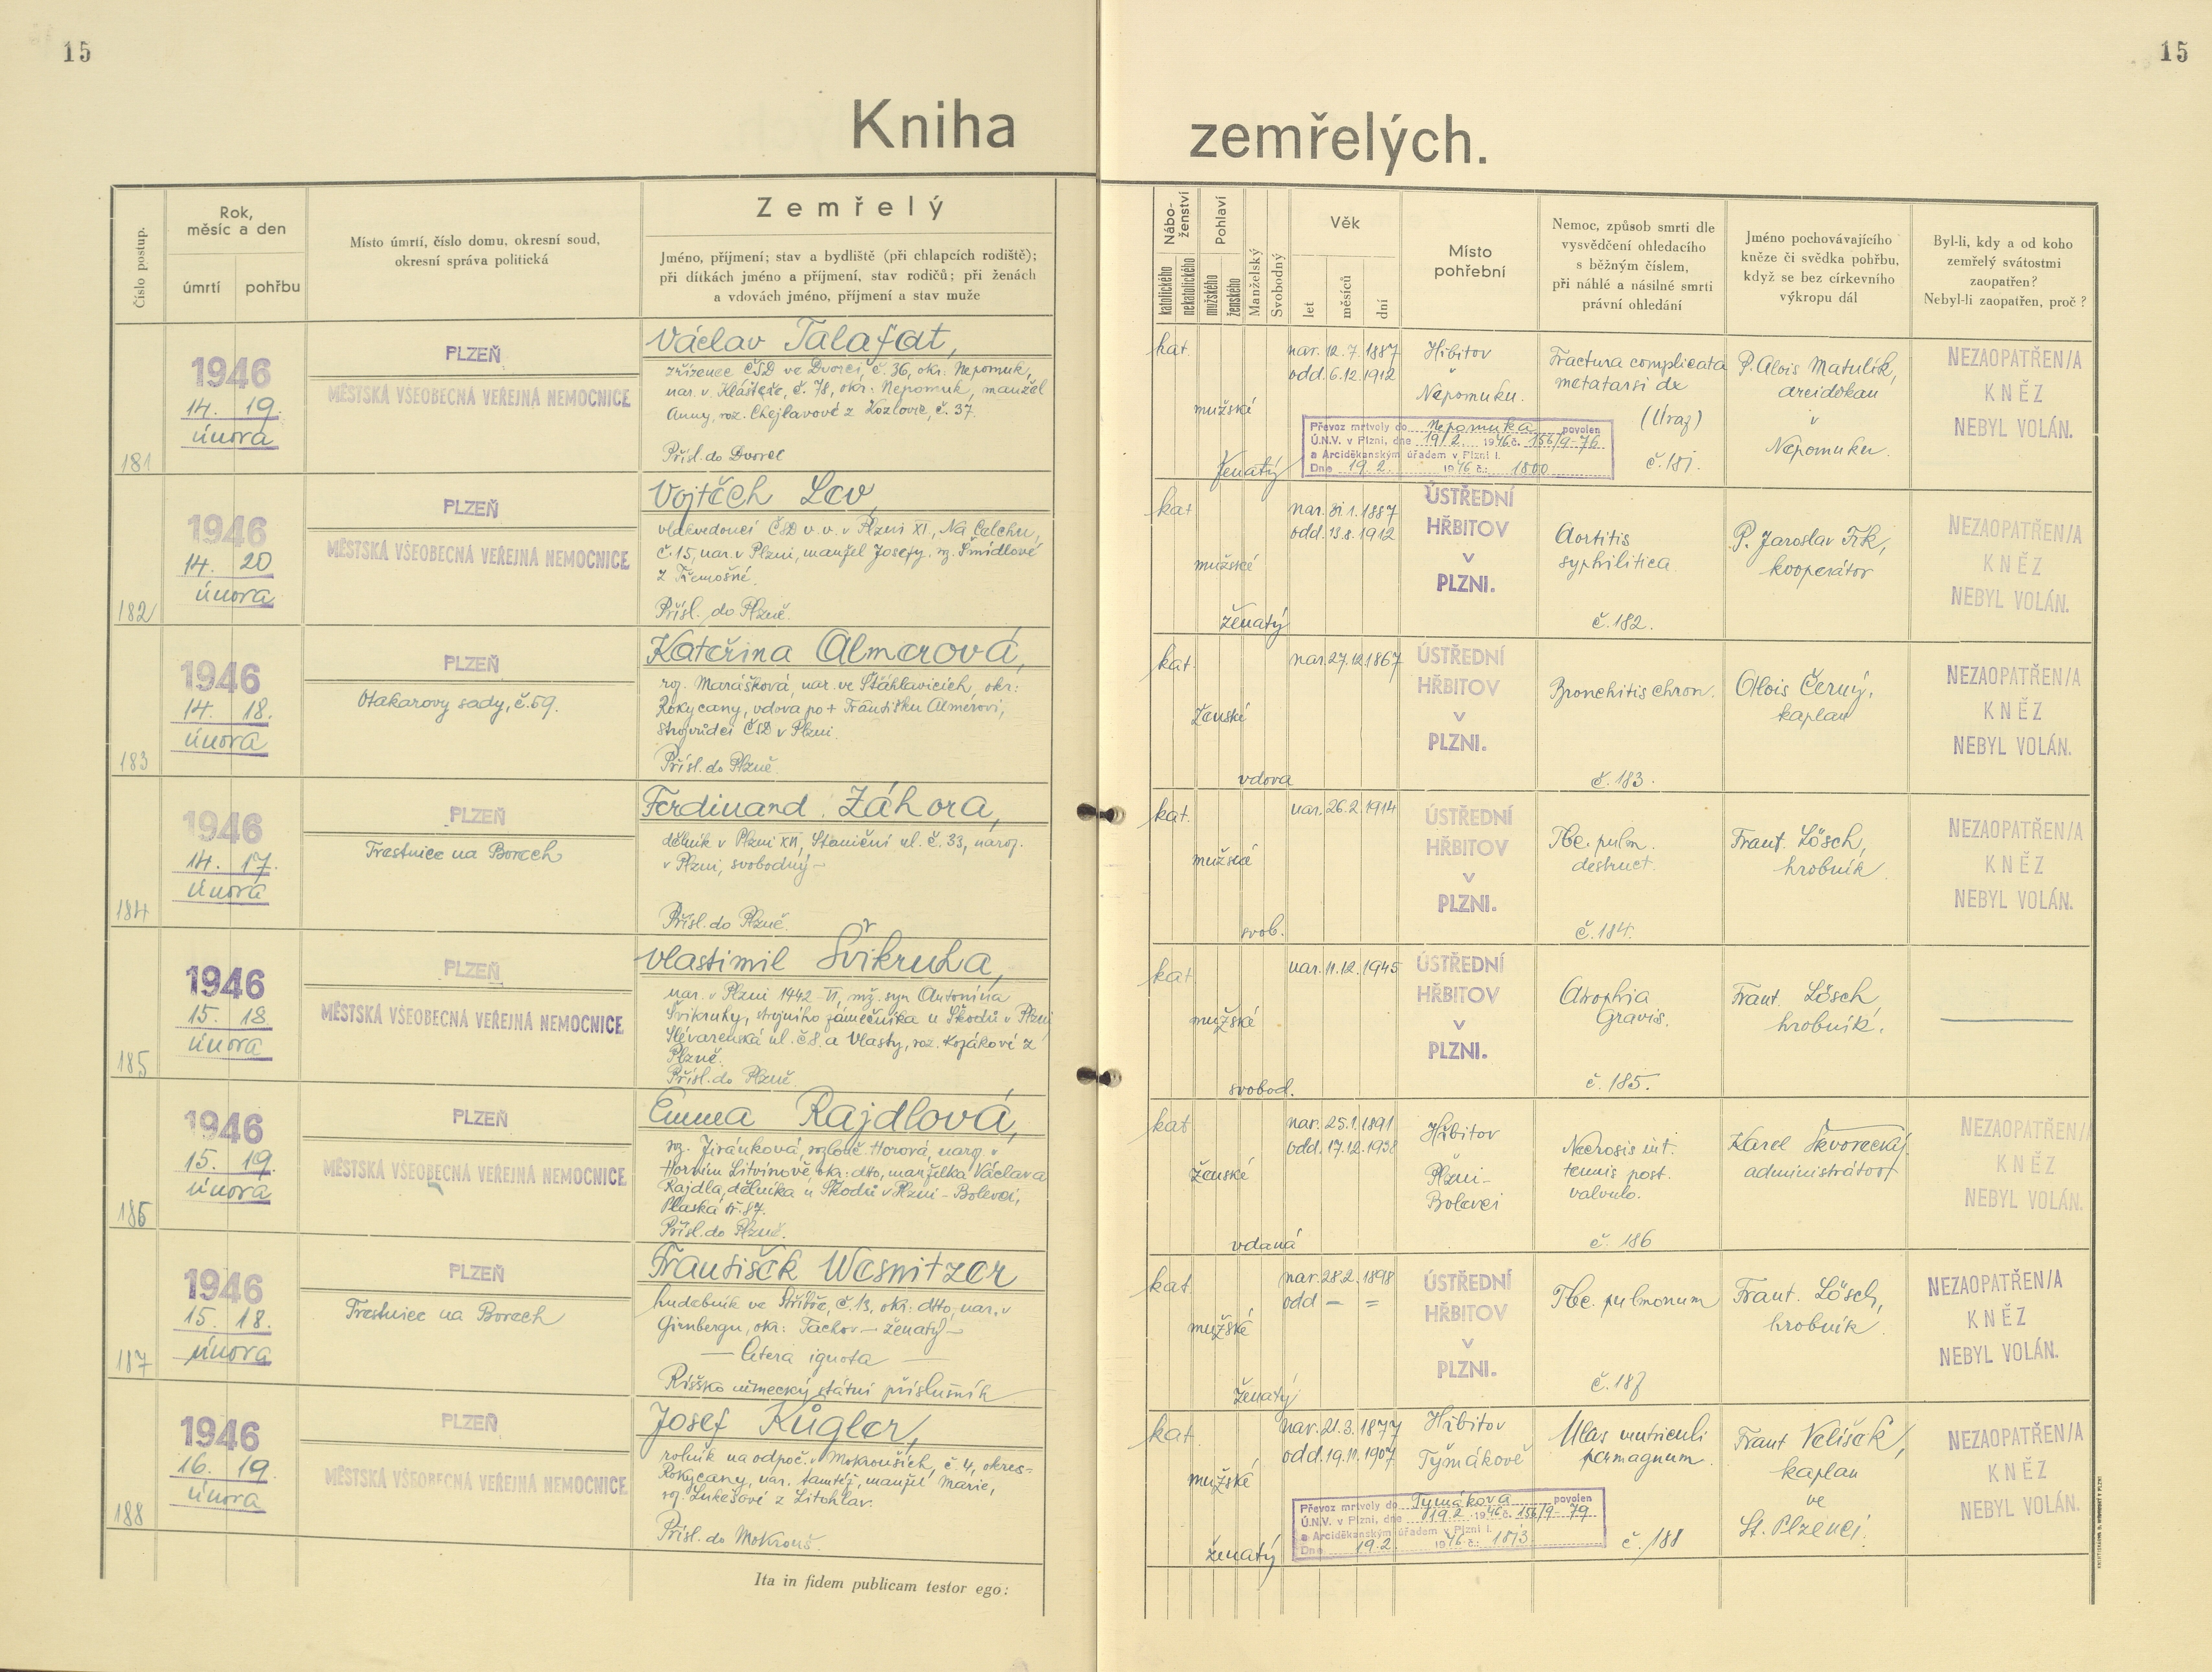 15
15
Kniha zemřelých.
Číslo postup.
Rok,
měsíc a den
úmrtí
pohřbu
Místo úmrtí, číslo domu, okresní soud,
okresní správa politická
Zemřelý
Jméno, příjmení; stav a bydliště (při chlapcích rodiště);
při dítkách jméno a příjmení, stav rodičů; při ženách
a vdovách jméno, příjmení a stav muže
Nábo-
ženství
katolického
nekatolického
Pohlaví
mužského
ženského
Manželský
Svobodný
Věk
let
měsíců
dní
Místo
pohřební
Nemoc, způsob smrti dle
vysvědčení ohledacího
s běžným číslem,
při náhlé a násilné smrti
právní ohledání
Jméno pochovávajícího
kněze či svědka pohřbu,
když se bez církevního
výkropu dál
Byl-li, kdy a od koho
zemřelý svátostmi
zaopatřen?
Nebyl-li zaopatřen, proč?
181
1946
14. 19.
února
PLZEŇ
MĚSTSKÁ VŠEOBECNÁ VEŘEJNÁ NEMOCNICE
Václav Talafat,
zřízenec ČSD ve Dvorci, č. 36, okr: Nepomuk,
nar. v Klášteře, č. 78, okr: Nepomuk, manžel
Anny, roz. Chejlavové z Kozlovic, č. 37.
Přísl. do Dvorec
kat.
mužské
ženatý
nar. 12. 7. 1887
odd. 6. 12. 1912
Hřbitov
v
Nepomuku.
Převoz mrtvoly do Nepomuka povolen
Ú.N.V. v Plzni, dne 19/2. 1946 č. 156/9-76
a Arciděkanským úřadem v Plzni I.
Dne 19. 2. 1946 č.: 1800
Fractura complicata
metatarsi dx
(Úraz)
č. 181.
P. Alois Matulík,
arciděkan
v
Nepomuku.
NEZAOPATŘEN/A
KNĚZ
NEBYL VOLÁN.
182
1946
14. 20
února
PLZEŇ
MĚSTSKÁ VŠEOBECNÁ VEŘEJNÁ NEMOCNICE
Vojtěch Lev,
vlakvedoucí ČSD v. v. v Plzni XI, Na Celchu,
č. 15, nar. v Plzni, manžel Josefy, rz. Šmídlové
z Třemošné.
Přísl. do Plzně.
kat
mužské
ženatý
nar. 31 1. 1887
odd. 13. 8. 1912
ÚSTŘEDNÍ
HŘBITOV
V
PLZNI.
Aortitis
syphilitica.
č. 182.
P. Jaroslav Trk,
kooperátor
NEZAOPATŘEN/A
KNĚZ
NEBYL VOLÁN.
183
1946
14. 18.
února
PLZEŇ
Otakarovy sady, č. 59.
Kateřina Almerová,
roz. Marášková, nar. ve Šťáhlavicích, okr:
Rokycany, vdova po + Františku Almerovi,
strojvůdci ČSD v Plzni.
Přísl. do Plzně.
kat.
ženské
vdova
nar. 27. 12 1867
ÚSTŘEDNÍ
HŘBITOV
V
PLZNI.
Bronchitis chron.
č. 183.
Alois Černý,
kaplan
NEZAOPATŘEN/A
KNĚZ
NEBYL VOLÁN.
184
1946
14. 17.
února
PLZEŇ
Trestnice na Borech
Ferdinand Záhora,
dělník v Plzni XII, Staniční ul. č. 33, naroz.
v Plzni, svobodný –
Přísl. do Plzně.
kat.
mužské
svob.
nar. 26. 2. 1914
ÚSTŘEDNÍ
HŘBITOV
V
PLZNI.
Tbc. pulm.
destruct.
č. 184.
Frant. Lösch,
hrobník.
NEZAOPATŘEN/A
KNĚZ
NEBYL VOLÁN.
185
1946
15. 18.
února
PLZEŇ
MĚSTSKÁ VŠEOBECNÁ VEŘEJNÁ NEMOCNICE
Vlastimil Švikruha,
nar. v Plzni 1942 - VI, mž. syn Antonína
Švikruhy, strojního zámečníka u Škodů v Plzni
Slévarenská ul. č 8. a Vlasty, roz. Kozákové z
Plzně.
Přísl. do Plzně.
kat.
mužské
svobod.
nar. 11. 12. 1945
ÚSTŘEDNÍ
HŘBITOV
V
PLZNI.
Atrophia
Gravis.
č. 185.
Frant. Lösch,
hrobník.
186
1946
15. 19.
února
PLZEŇ
MĚSTSKÁ VŠEOBECNÁ VEŘEJNÁ NEMOCNICE
Emma Rajdlová,
rz. Jiránková, rozluč. Horová, naroz. v
Horním Litvínově, okr: dtto, manželka Václava
Rajdla, dělníka u Škodů v Plzni - Bolevci,
Plaská tř. 87.
Přísl. do Plzně.
kat
ženské
vdaná
nar. 25. 1. 1891
odd. 17. 12. 1938
Hřbitov
v
Plzni-
Bolevci
Necrosis int.
tennis post.
valvulo.
č. 186
Karel Škvorecký
administrátor
NEZAOPATŘEN/A
KNĚZ
NEBYL VOLÁN.
187
1946
15. 18.
února
PLZEŇ
Trestnice na Borech
František Wesnitzer
hudebník ve Stříbře, č. 13, okr: dtto, nar. v
Girnbergu, okr: Tachov – ženatý –
— Cetera ignota —
Říšsko německý státní příslušník
kat.
mužské
ženatý
nar. 28. 2. 1898
odd – =
ÚSTŘEDNÍ
HŘBITOV
V
PLZNI.
Tbc. pulmonum
č. 187
Frant. Lösch,
hrobník.
NEZAOPATŘEN/A
KNĚZ
NEBYL VOLÁN.
188
1946
16. 19.
února
PLZEŇ
MĚSTSKÁ VŠEOBECNÁ VEŘEJNÁ NEMOCNICE
Josef Kůgler,
rolník na odpoč. v Mokrouších, č. 4, okres-
Rokycany, nar. tamtéž, manžel Marie,
roz. Lukešové z Litohlav.
Přísl. do Mokrouš.
kat.
mužské
ženatý
nar. 21. 3. 1877
odd. 19. 11. 1907
Hřbitov
Týmákově
Převoz mrtvoly do Tymákova povolen
Ú.N.V. v Plzni, dne 19 2 1946 č. 156/9- 79
a Arciděkanským úřadem v Plzni I.
Dne 19. 2. 1946 č.: 1813
Ulcus ventriculi
permagnum.
č. 188
Frant Velíšek,
kaplan
ve
St. Plzenci.
NEZAOPATŘEN/A
KNĚZ
NEBYL VOLÁN.
Ita in fidem publicam testor ego: